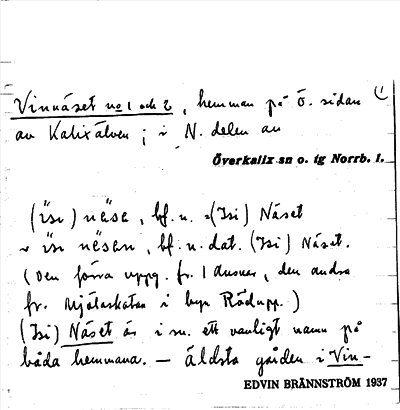 Vinnäset no 1 och 2, hemman på Ö. sidan 1)
av Kalixälven; i N. delen av
Överkalix sn o. tg Norrb. l.
(isi) nèse, bf. n. =(Isi) Näset
isi nèsen, bf. n. dat. (Isi) Näset.
(Den förra uppg. fr. den andra
fr. i byn Rödupp.)
(Isi) Näset är i sn. ett vanligt namn på
båda hemmana. — äldsta gården i Vin-
EDVIN BRÄNNSTRÖM 1937